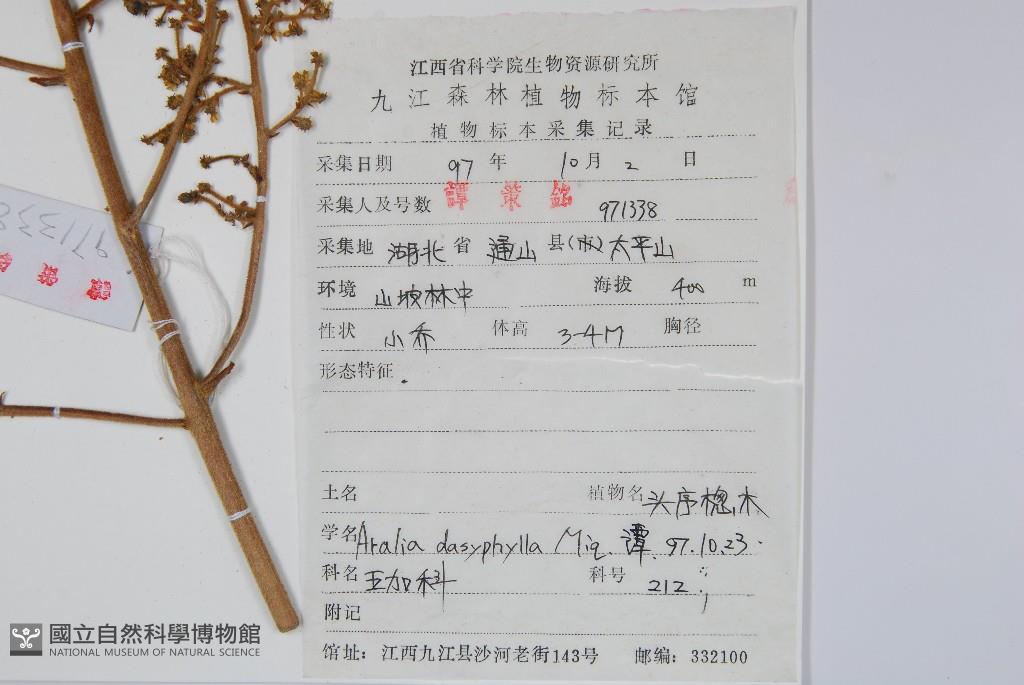 江西省科学院生物资源研究所
九江森林植物标本馆
植物标本采集记录
采集日期 97 年 10 月 2 日
采集人及号数 譚策銘 971338
采集地 湖北 省 通山 县(市) 太平山
环境 山坡林中 海拔 400 m
性状 小乔 体高 3-4M 胸径
形态特征
土名 植物名 头序楤木
学名 Aralia dasyphylla Miq. 譚 97.10.23.
科名 五加科 科号 212
附记
馆址：江西九江县沙河老街143号 邮编：332100
971338
國立自然科學博物館
NATIONAL MUSEUM OF NATURAL SCIENCE